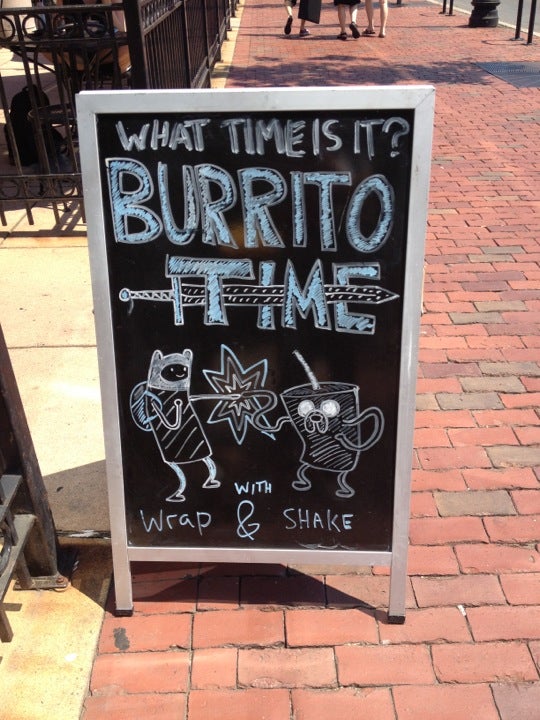 WHAT TIME IS IT?
BURRITO
TIME
WITH
Wrap & SHAKE